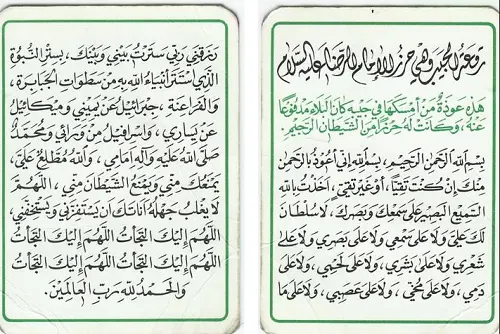 رقعة الجيب وهي حرز الإمام الرضا عليه السلام
هذه عوذة من أمسكها في جيبه كان البلاء مدفوعاً
عنه، وكانت له حرزاً من الشيطان الرجيم.
بسم الله الرحمن الرحيم، بسم الله إني أعوذ بالرحمن
منك إن كنت تقياً، أو غير تقي، أخذت بالله
السميع البصير على سمعك وبصرك، لا سلطان
لك علي ولا على سمعي ولا على بصري ولا على
شعري ولا على بشري، ولا على لحمي، ولا على
دمي، ولا على مخي، ولا على عصبي، ولا على ما
ورزقني ربي سترت بيني وبينك، بستر النبوة
الذي استتر أنبياء الله به من سطوات الجبابرة،
والفراعنة، جبرائيل عن يميني وميكائيل
عن يساري، واسرافيل من ورائي ومحمد
صلى الله عليه وآله أمامي، والله مطلع علي،
يمنعك مني ويمنع الشيطان مني، اللهم
لا يغلب جهله أناتك أن يستفزني ويستخفني،
اللهم إليك التجأت اللهم إليك التجأت
اللهم إليك التجأت اللهم إليك التجأت
والحمد لله رب العالمين.